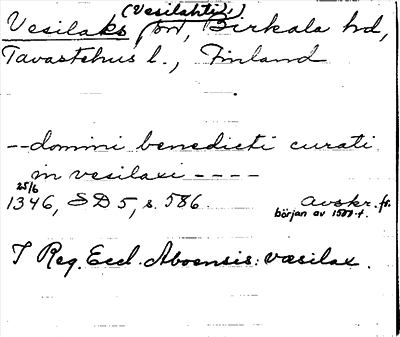 (Vesilahti,)
Vesilaks sn, Birkala hd,
Tavastehus l., Finland
--domini benedicti curati
in vesilaxi ----
25/6
1346, SD 5, s. 586. Avskr. fr.
början av 1500-t.
I Reg. Eccl. Aboensis: væsilax.